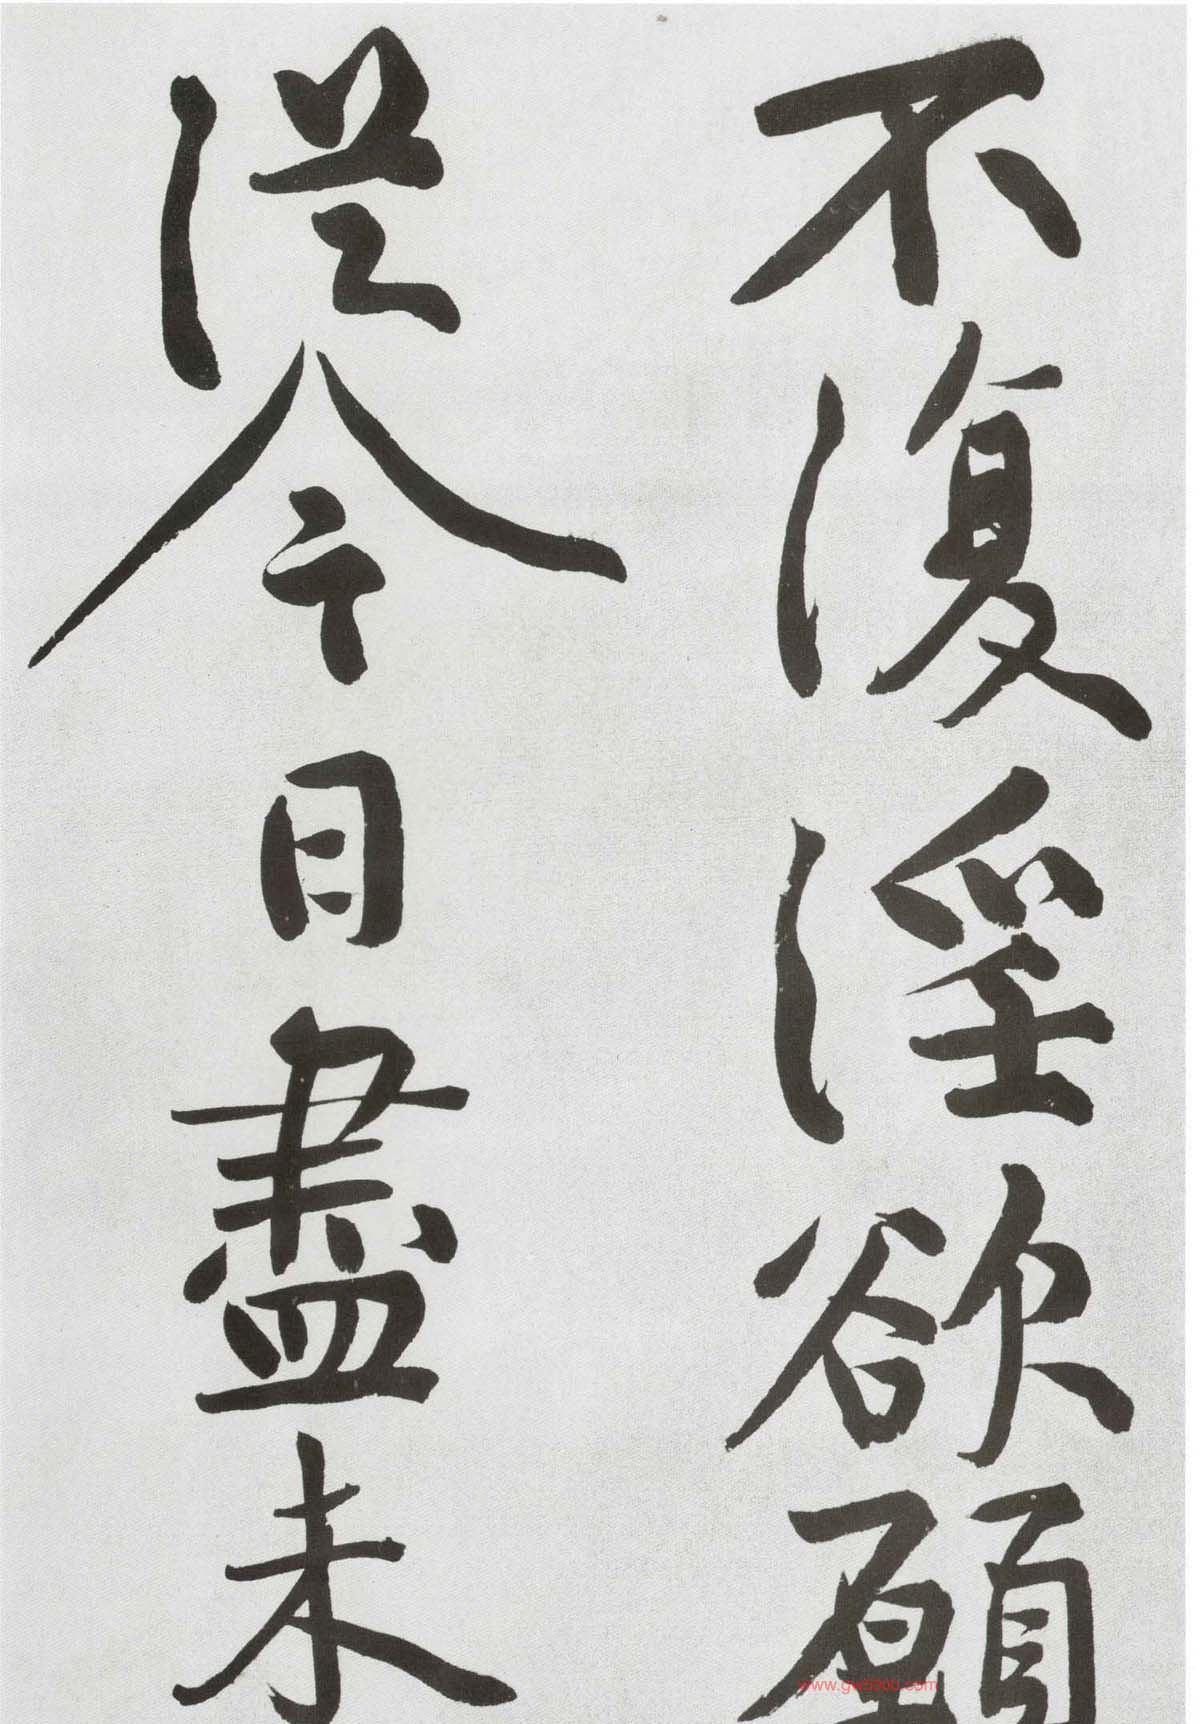 不復淫欲願
從今日盡未
www.gw5000.com